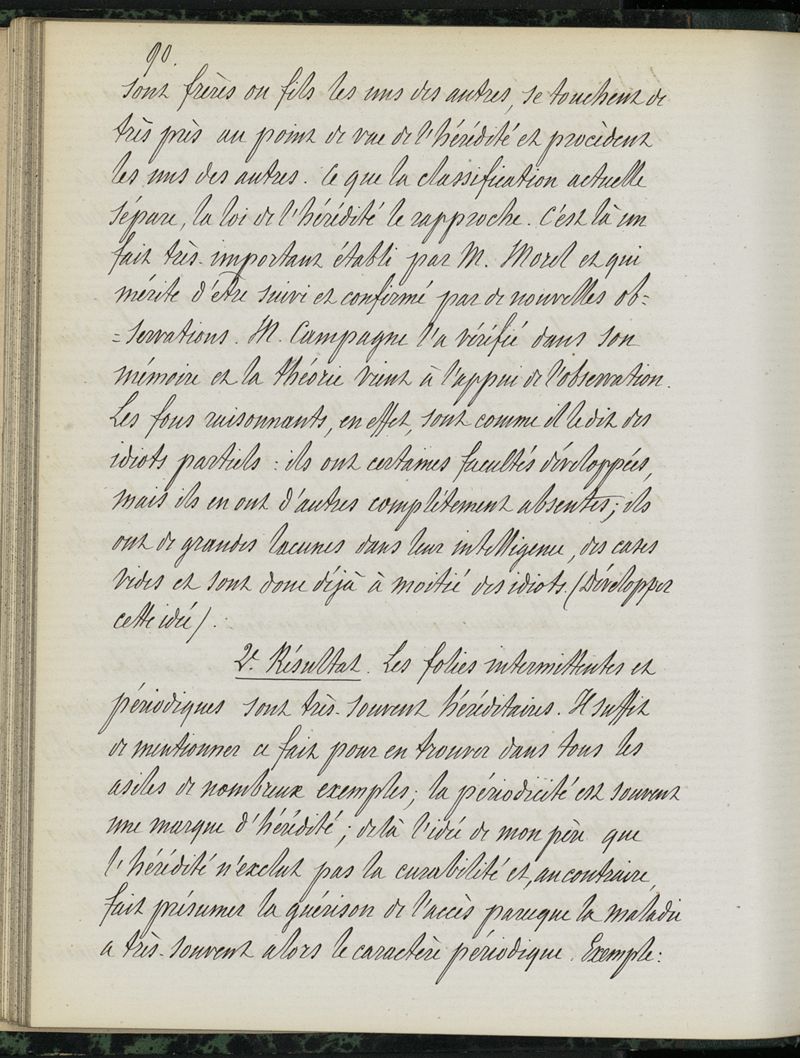 90.
sont frères ou fils les uns des autres, se touchent de
très près au point de vue de l'hérédité et procèdent
les uns des autres. Ce que la classification actuelle
sépare, la loi de l'hérédité le rapproche. C'est là un
fait très-important établi par M. Morel et qui
mérite d'être suivi et confirmé par de nouvelles ob=
=servations. M. Campagne l'a vérifié dans son
mémoire et la théorie vient à l'appui de l'observation.
Les fous raisonnants, en effet, sont comme il le dit des
idiots partiels : ils ont certaines facultés développées,
mais ils en ont d'autres complètement absentes; ils
ont de grandes lacunes dans leur intelligence, des cases
vides et sont donc déjà à moitié des idiots. (Développer
cette idée).
2e. Résultat. Les folies intermittentes et
périodiques sont très-souvent héréditaires. Il suffit
de mentionner ce fait pour en trouver dans tous les
asiles de nombreux exemples; la périodicité est souvent
une marque d'hérédité; de là l'idée de mon père que
l'hérédité n'exclut pas la curabilité et, au contraire,
fait présumer la guérison de l'accès parceque la maladie
a très-souvent alors le caractère périodique. Exemple: